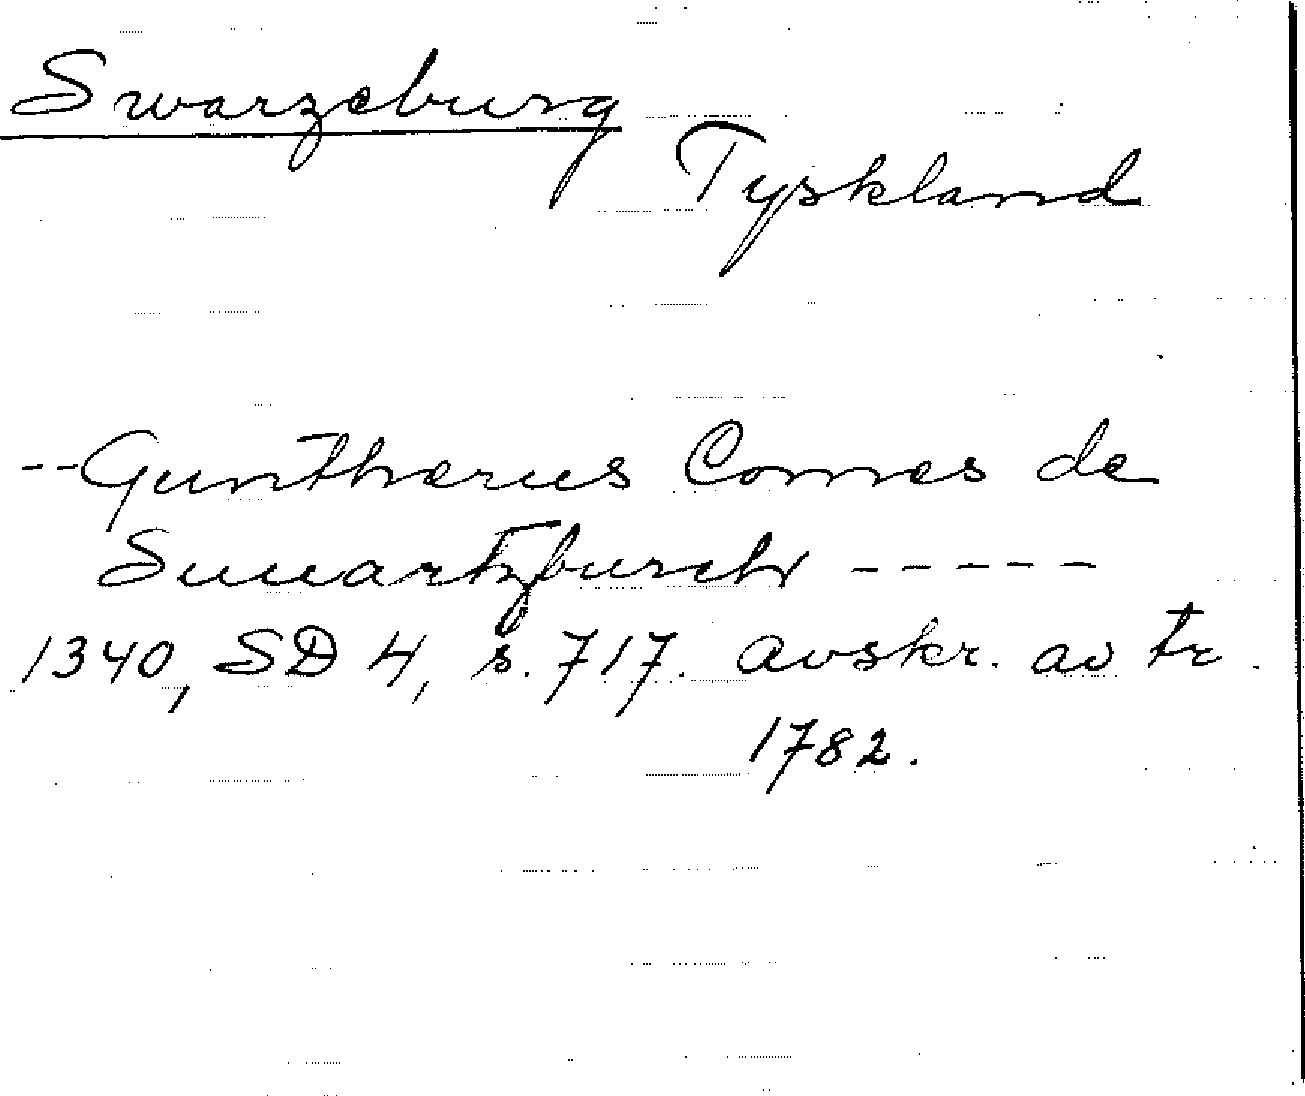 Swarzeburg
Tyskland
--Guntherus Comes de
Suuartzburch -----
1340, SD 4, s. 717. avskr. av tr.
1782.